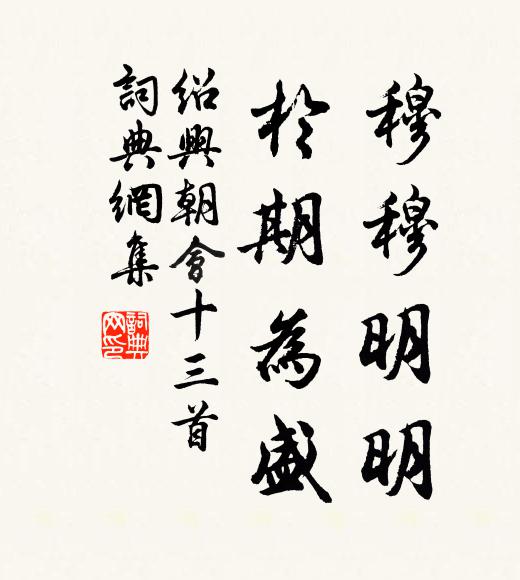 穆穆明明
於期為盛
紹興朝會十三首
詞典網集
詞典網印